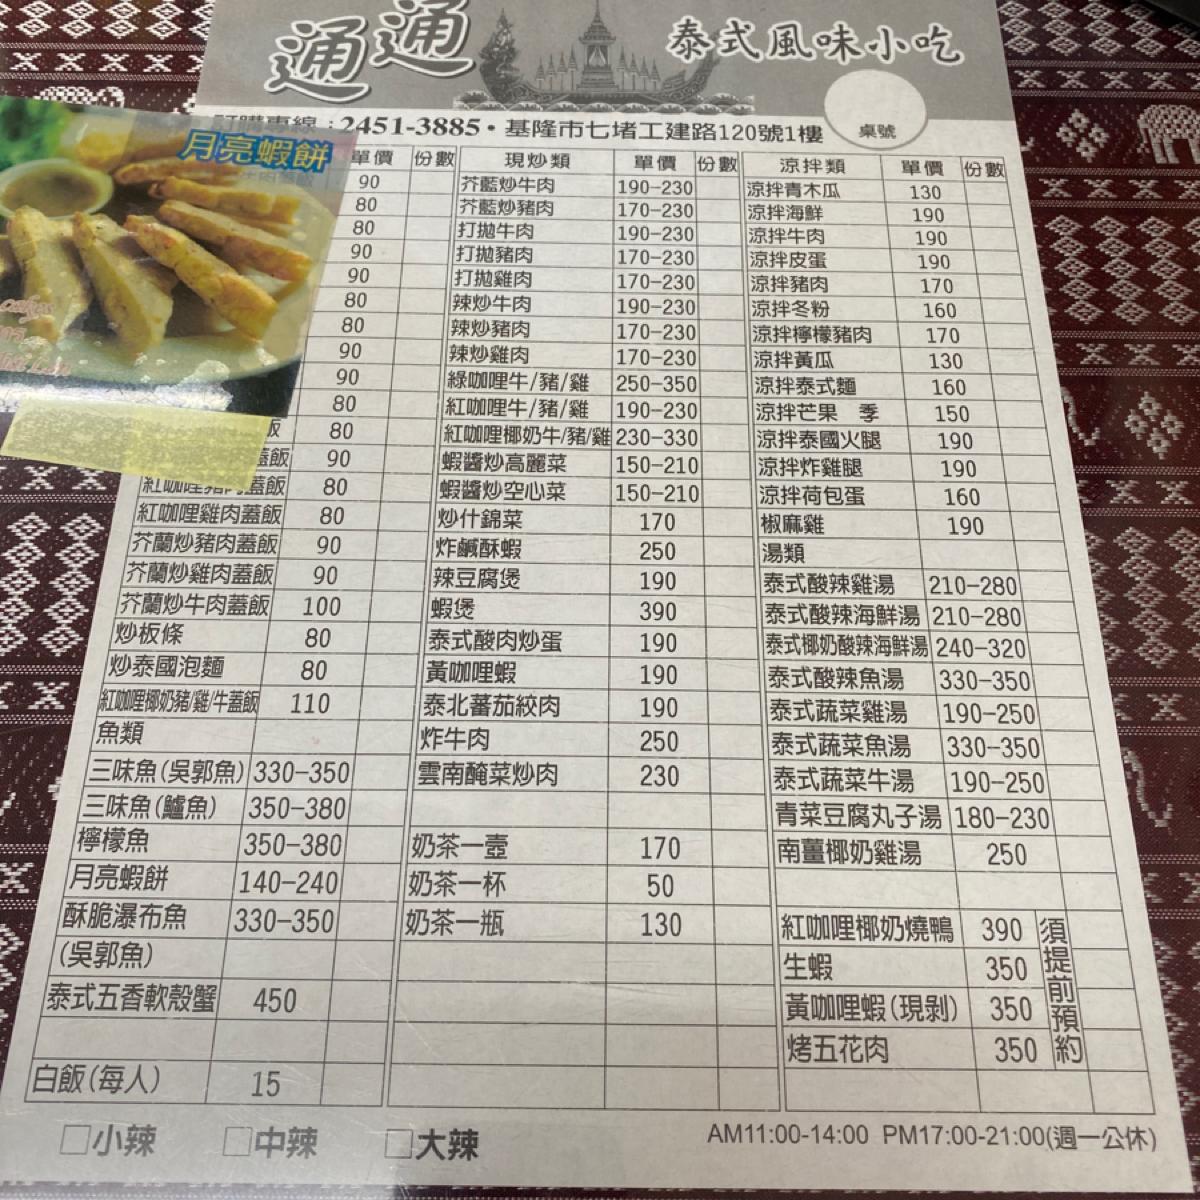 通通 泰式風味小吃
訂購專線：2451-3885・基隆市七堵工建路120號1樓 桌號
月亮蝦餅
單價 份數
90
80
80
90
90
80
80
90
90
80
飯 80
蓋飯 90
紅咖哩豬肉蓋飯 80
紅咖哩雞肉蓋飯 80
芥蘭炒豬肉蓋飯 90
芥蘭炒雞肉蓋飯 90
芥蘭炒牛肉蓋飯 100
炒板條 80
炒泰國泡麵 80
紅咖哩椰奶豬/雞/牛蓋飯 110
魚類
三味魚(吳郭魚) 330-350
三味魚(鱸魚) 350-380
檸檬魚 350-380
月亮蝦餅 140-240
酥脆瀑布魚 330-350
(吳郭魚)
泰式五香軟殼蟹 450
白飯(每人) 15
現炒類 單價 份數
芥藍炒牛肉 190-230
芥藍炒豬肉 170-230
打拋牛肉 190-230
打拋豬肉 170-230
打拋雞肉 170-230
辣炒牛肉 190-230
辣炒豬肉 170-230
辣炒雞肉 170-230
綠咖哩牛/豬/雞 250-350
紅咖哩牛/豬/雞 190-230
紅咖哩椰奶牛/豬/雞 230-330
蝦醬炒高麗菜 150-210
蝦醬炒空心菜 150-210
炒什錦菜 170
炸鹹酥蝦 250
辣豆腐煲 190
蝦煲 390
泰式酸肉炒蛋 190
黃咖哩蝦 190
泰北蕃茄絞肉 190
炸牛肉 250
雲南醃菜炒肉 230
奶茶一壺 170
奶茶一杯 50
奶茶一瓶 130
涼拌類 單價 份數
涼拌青木瓜 130
涼拌海鮮 190
涼拌牛肉 190
涼拌皮蛋 190
涼拌豬肉 170
涼拌冬粉 160
涼拌檸檬豬肉 170
涼拌黃瓜 130
涼拌泰式麵 160
涼拌芒果 季 150
涼拌泰國火腿 190
涼拌炸雞腿 190
涼拌荷包蛋 160
椒麻雞 190
湯類
泰式酸辣雞湯 210-280
泰式酸辣海鮮湯 210-280
泰式椰奶酸辣海鮮湯 240-320
泰式酸辣魚湯 330-350
泰式蔬菜雞湯 190-250
泰式蔬菜魚湯 330-350
泰式蔬菜牛湯 190-250
青菜豆腐丸子湯 180-230
南薑椰奶雞湯 250
紅咖哩椰奶燒鴨 390
生蝦 350
黃咖哩蝦(現剝) 350
烤五花肉 350
須提前預約
□小辣 □中辣 □大辣
AM11:00-14:00 PM17:00-21:00(週一公休)